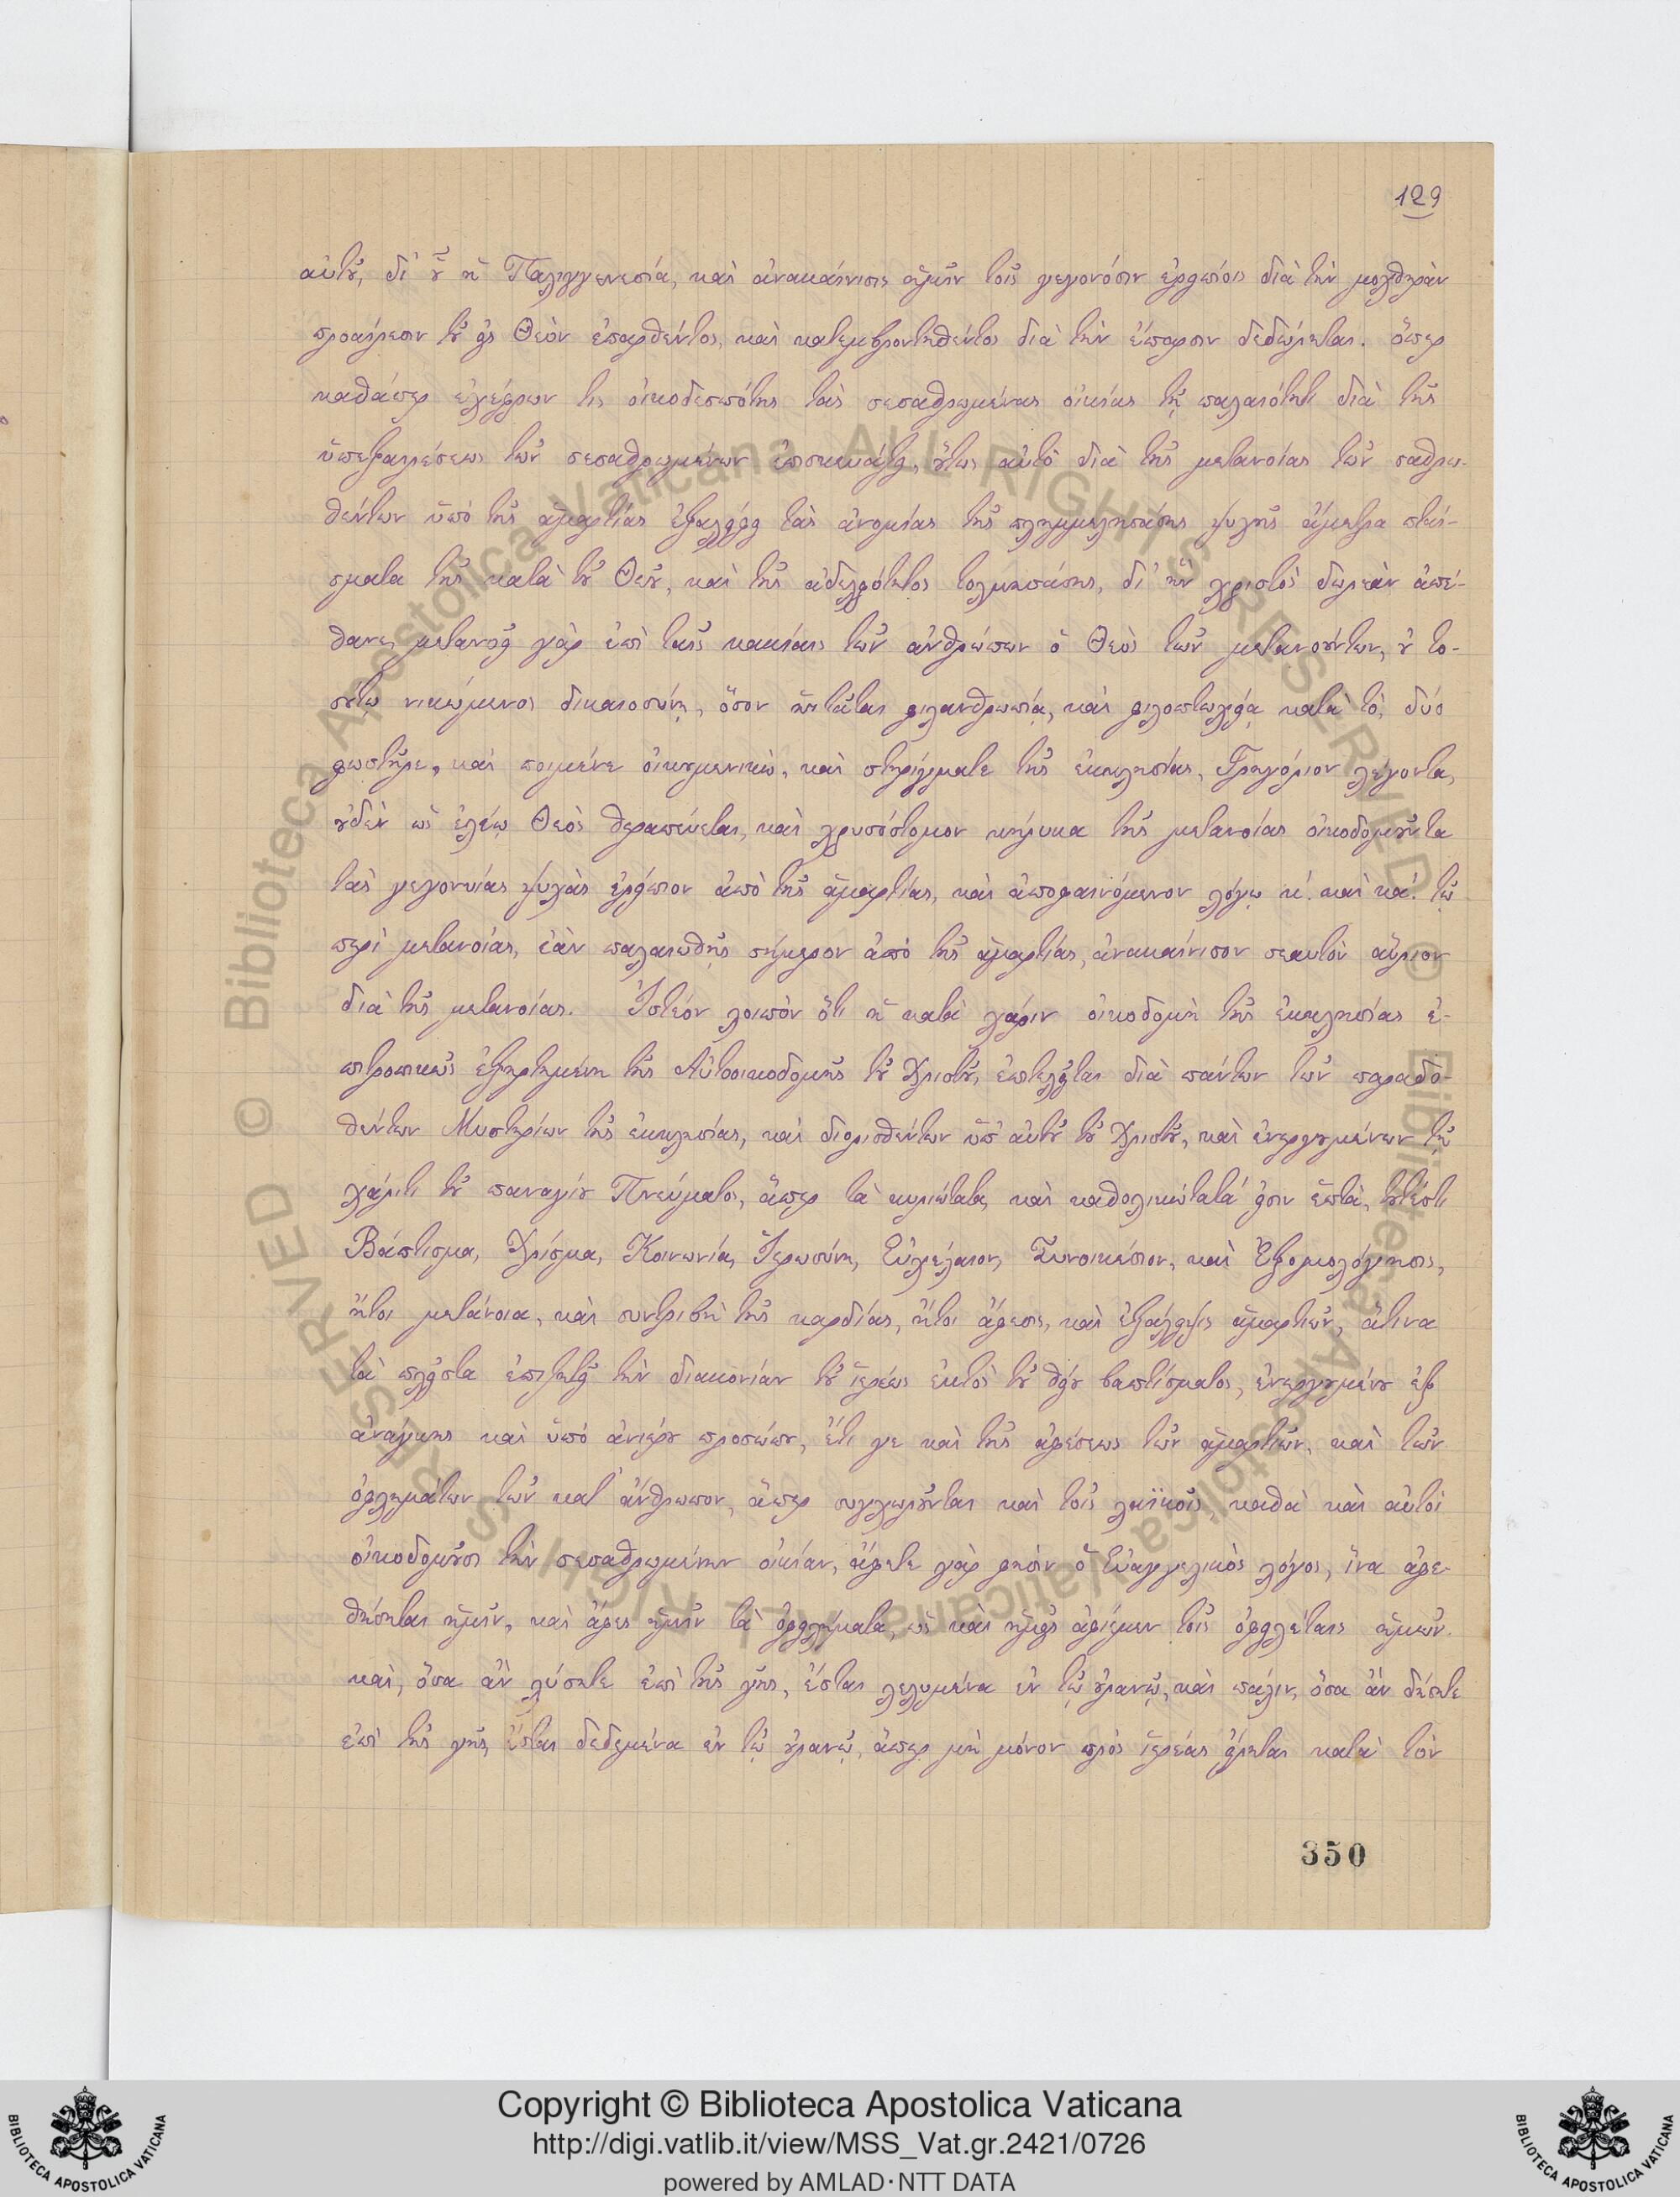 129
αὐτοῦ, δι' οὗ ἡ Παλιγγενεσία, καὶ ἀνακαίνισις ἡμῖν τοῖς γεγονόσιν ἐρειπίοις διὰ τὴν μοχθηρὰν
προαίρεσιν τοῦ εἰς Θεὸν ἐπαρθέντος, καὶ κατεμβροντηθέντος διὰ τὴν ἔπαρσιν δεδώρηται. ὅπερ
καθάπερ ἐχέφρων τις οἰκοδεσπότης τὰς σεσαθρωμένας οἰκίας τῇ παλαιότητι διὰ τῆς
ὑπεξαιρέσεως τῶν σεσαθρωμένων ἐπισκευάζει, οὕτως αὐτὸ διὰ τῆς μετανοίας τῶν σαθρω-
θέντων ὑπὸ τῆς ἁμαρτίας ἐξαλείφει τὰς ἀνομίας τῆς πλημμελησάσης ψυχῆς ἄμετρα πταί-
σματα τῆς κατὰ τοῦ Θεοῦ, καὶ τῆς ἀδελφότητος τολμησάσης, δι' ἣν χριστὸς δωρεὰν ἀπέ-
θανε, μετανοεῖ γὰρ ἐπὶ ταῖς κακίαις τῶν ἀνθρώπων ὁ Θεὸς τῶν μετανοούντων, οὐ το-
σούτῳ νικώμενος δικαιοσύνῃ, ὅσον ἡττᾶται φιλανθρωπίᾳ, καὶ φιλοπτωχείᾳ κατὰ τὸ, δύο
φωστῆρε, καὶ ποιμένε οἰκουμενικώ, καὶ στηρίγματε τῆς ἐκκλησίας, Γρηγόριον λέγοντα,
οὐδὲν ὡς ἐλέῳ Θεὸς θεραπεύεται, καὶ χρυσόστομον κήρυκα τῆς μετανοίας οἰκοδομοῦντα
τὰς γεγονυίας ψυχὰς ἐρείπιον ἀπὸ τῆς ἁμαρτίας, καὶ ἀποφαινόμενον λόγῳ κ΄. καὶ κα΄. τῷ
περὶ μετανοίας, ἐὰν παλαιωθῇς σήμερον ἀπὸ τῆς ἁμαρτίας, ἀνακαίνισον σεαυτὸν αὔριον
διὰ τῆς μετανοίας. Ἰστέον λοιπὸν ὅτι ἡ κατὰ χάριν οἰκοδομὴ τῆς ἐκκλησίας ἐ-
πιτροπικῶς ἐξηρτημένη τῆς Αὐτοοικοδομῆς τοῦ Χριστοῦ, ἐπιτελεῖται διὰ πάντων τῶν παραδο-
θέντων Μυστηρίων τῆς ἐκκλησίας, καὶ διορισθέντων ὑπ' αὐτοῦ τοῦ Χριστοῦ, καὶ ἐνεργουμένων τῇ
χάριτι τοῦ παναγίου Πνεύματος, ἅπερ τὰ κυριώτατα, καὶ καθολικώτατά εἰσιν ἑπτὰ, τουτέστι
Βάπτισμα, Χρίσμα, Κοινωνία, Ἱερωσύνη, Εὐχέλαιον, Συνοικέσιον, καὶ Ἐξομολόγησις,
ἤτοι μετάνοια, καὶ συντριβὴ τῆς καρδίας, ἤτοι ἄφεσις, καὶ ἐξάλειψις ἁμαρτιῶν, ἅτινα
τὰ πλεῖστα ἐπιζητεῖ τὴν διακονίαν τοῦ ἱερέως ἐκτὸς τοῦ θείου βαπτίσματος, ἐνεργουμένου ἐξ
ἀνάγκης καὶ ὑπὸ ἀνιέρου προσώπου, ἔτι γε καὶ τῆς ἀφέσεως τῶν ἁμαρτιῶν, καὶ τῶν
ὀφλημάτων τῶν κατ' ἄνθρωπον, ἅπερ συγχωροῦνται καὶ τοῖς λαϊκοῖς καθὰ καὶ αὐτοὶ
οἰκοδομοῦσι τὴν σεσαθρωμένην οἰκίαν, ἄφετε γάρ φησιν ὁ Εὐαγγελικὸς λόγος, ἵνα ἀφε-
θήσηται ἡμῖν, καὶ ἄφες ἡμῖν τὰ ὀφειλήματα, ὡς καὶ ἡμεῖς ἀφίεμεν τοῖς ὀφειλέταις ἡμῶν.
καὶ, ὅσα ἂν λύσητε ἐπὶ τῆς γῆς, ἔσται λελυμένα ἐν τῷ οὐρανῷ, καὶ πάλιν, ὅσα ἂν δήσητε
ἐπὶ τῆς γῆς, ἔσται δεδεμένα ἐν τῷ οὐρανῷ, ἅπερ μὴ μόνον πρὸς ἱερέας εἴρηται κατὰ τὸν
350
© Biblioteca Apostolica Vaticana ALL RIGHTS RESERVED © Biblioteca Apostolica Vaticana ALL RIGHTS RESERVED
Copyright © Biblioteca Apostolica Vaticana
http://digi.vatlib.it/view/MSS_Vat.gr.2421/0726
powered by AMLAD·NTT DATA
BIBLIOTECA APOSTOLICA VATICANA
BIBLIOTECA APOSTOLICA VATICANA